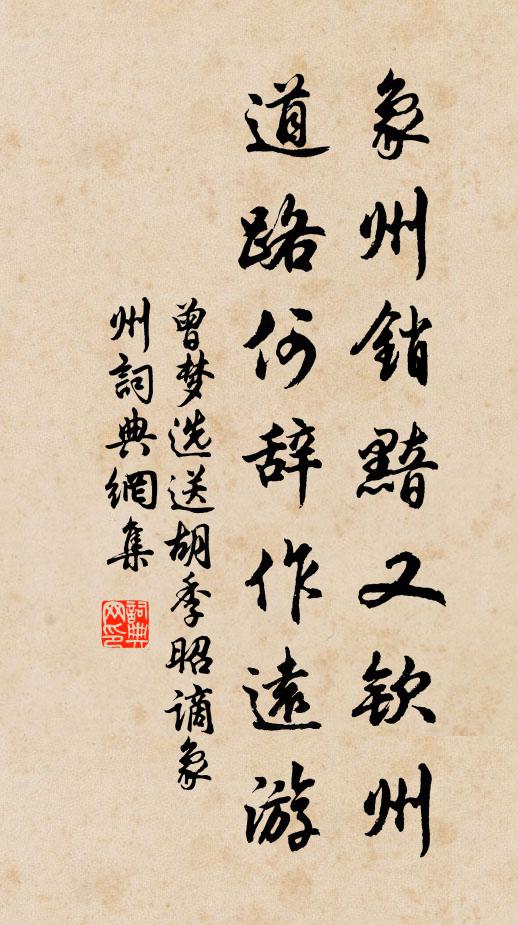 象州銷黯又欽州
道路何辞作遠游
曾梦选送胡季昭谪象
州詞典網集
詞典网印